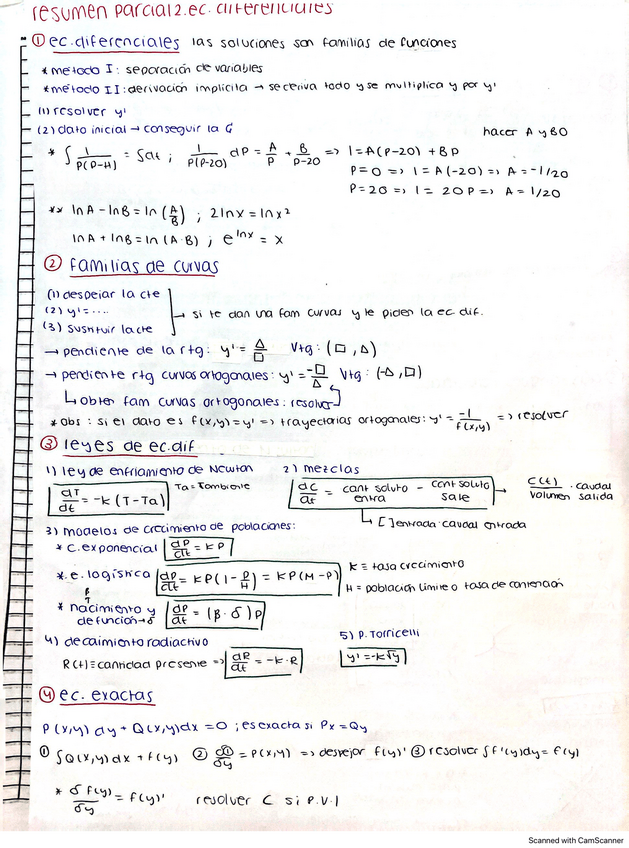 resumen parcial 2. ec. diferenciales
① ec. diferenciales las soluciones son familias de funciones
* método I: separación de variables
* método II: derivación implícita → se deriva todo y se multiplica y por y'
(1) resolver y'
(2) dato inicial → conseguir la C
hacer A y B 0
* ∫ 1/P(P-H) = ∫at ; 1/P(P-20) dP = A/P + B/P-20 => 1 = A(P-20) + BP
P=0 => 1 = A(-20) => A = -1/20
P=20 => 1 = 20P => A = 1/20
** lnA - lnB = ln(A/B) ; 2lnx = lnx²
lnA + lnB = ln(A·B) ; e^lnx = x
② Familias de curvas
(1) despejar la cte
(2) y' = ....
(3) sustituir la cte
→ si te dan una fam curvas y te piden la ec dif.
→ pendiente de la rtg: y' = △/□ Vtg: (□, △)
→ pendiente rtg curvas ortogonales: y' = -□/△ Vtg: (-△, □)
↳ obten fam curvas ortogonales: resolver
* obs: si el dato es f(x,y) = y' => trayectorias ortogonales: y' = -1/f(x,y) => resolver
③ leyes de ec. dif
1) ley de enfriamiento de Newton
dT/dt = -k(T-Ta)
Ta = Tambiente
2) mezclas
dc/dt = cant soluto entra - cant soluto sale → C(t)/volumen · caudal salida
↳ [] entrada · caudal entrada
3) modelos de crecimiento de poblaciones:
* c. exponencial dP/dt = kP
*. e. logística dP/dt = kP(1 - P/H) = kP(M-P)
k = tasa crecimiento
H = población límite o tasa de contención
* nacimiento y defunción → δ dP/dt = (β - δ)P
β
4) decaimiento radiactivo
R(t) ≡ cantidad presente => dR/dt = -k·R
5) P. Torricelli
y' = -k√y
④ ec. exactas
P(x,y) dy + Q(x,y) dx = 0 ; es exacta si Px = Qy
① ∫Q(x,y) dx + f(y) ② d①/δy = P(x,y) => despejar f(y)' ③ resolver ∫f'(y)dy = f(y)
* δf(y)/δy = f(y)' resolver C si P.V.I
Scanned with CamScanner